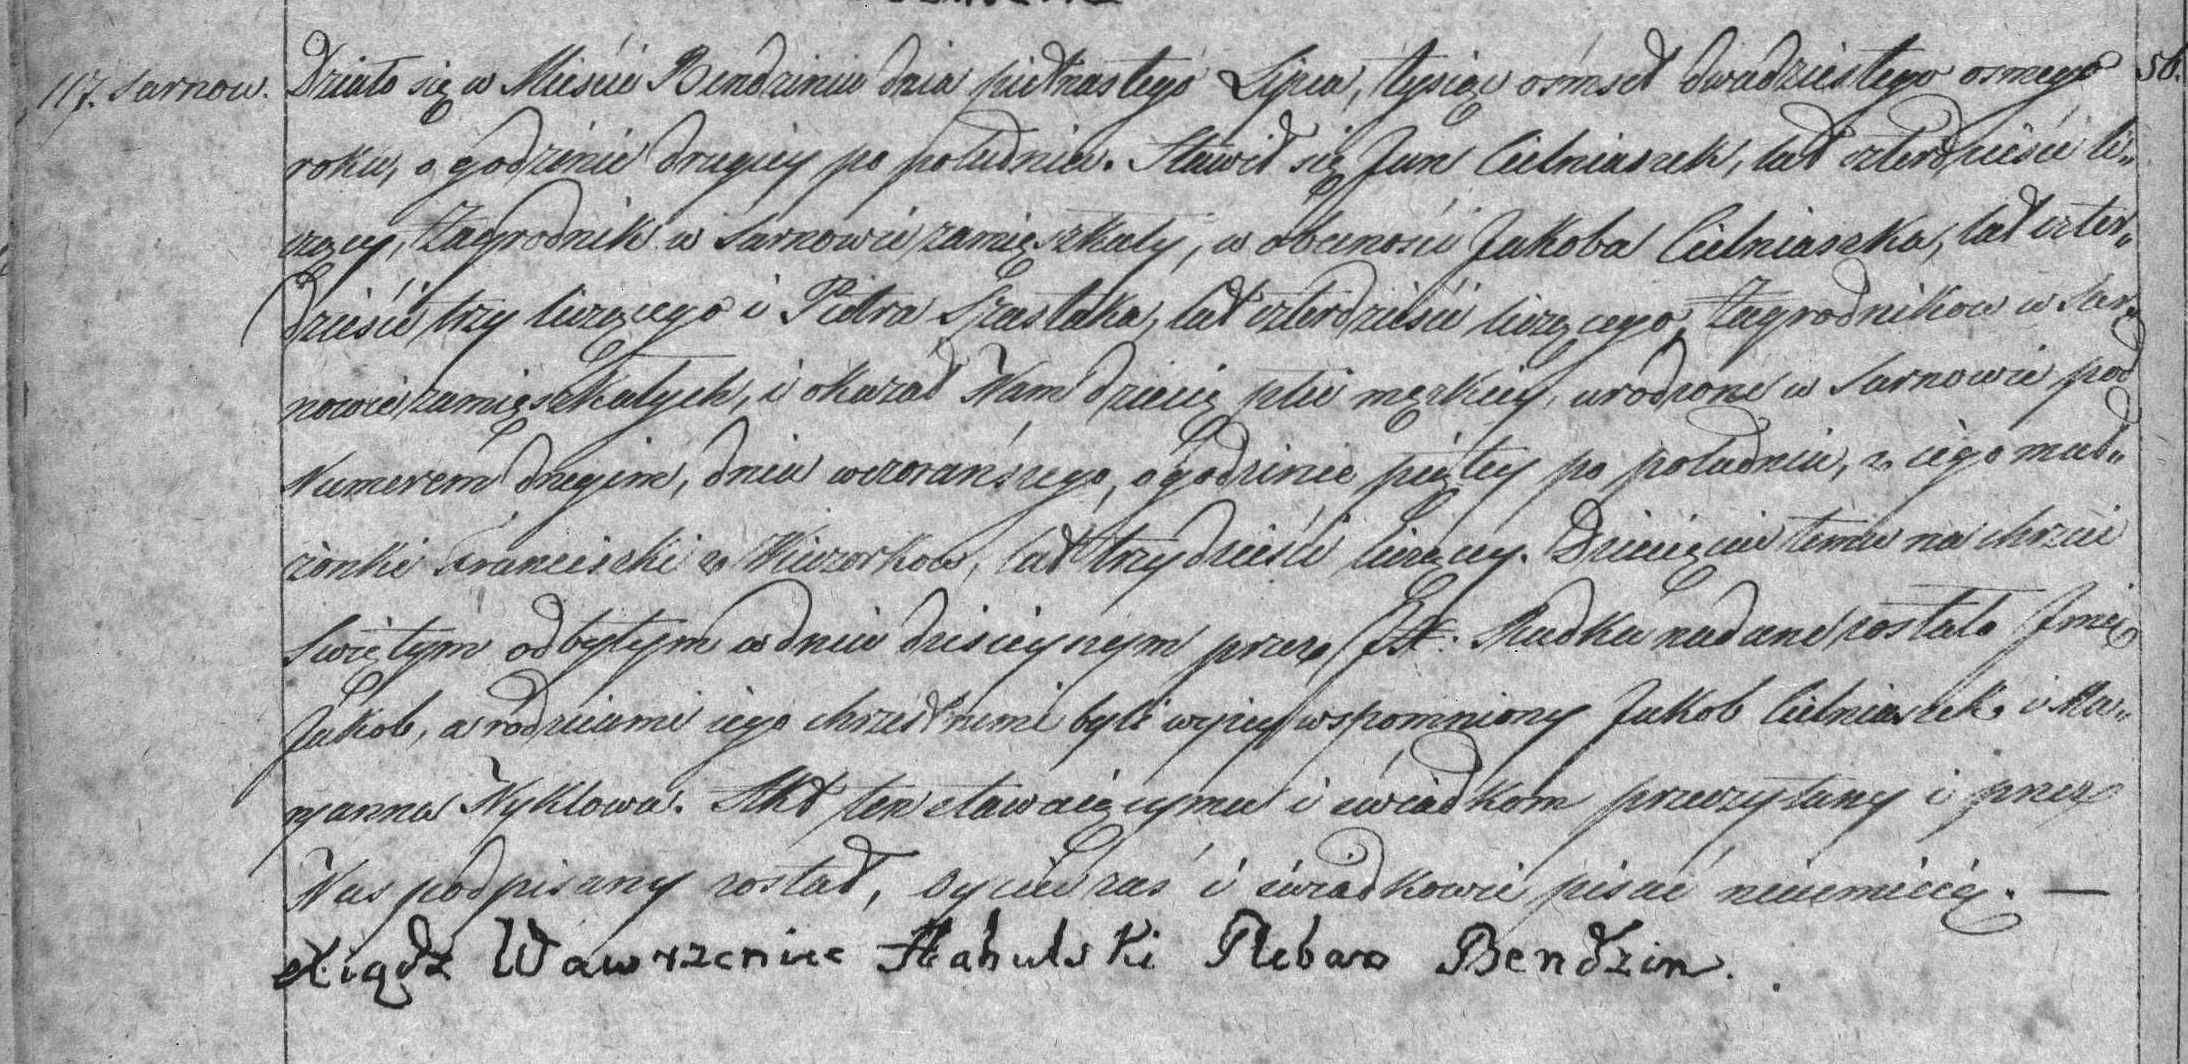 117. Sarnow. Działo się w Mieście Bendzinie dnia piętnastego Lipca, tysiąc ośmset dwadziestego osmego 58.
roku, o godzinie drugiey po południu. Stawił się Jan Cielniaszek, lat czterdzieści li„
czący, Zagrodnik w Sarnowie zamięszkały, w obecności Jakoba Cielniaszka, lat czter„
dzieści trzy liczącego i Pietra Szastaka, lat czterdzieści liczącego, Zagrodnikow w Sar„
nowie zamięszkałych, i okazał Nam dziecię płci męzkiey, urodzone w Sarnowie pod
Numerem drugim, dnia wczorayszego, o godzinie piątey po południu, z iego mał„
żonki Franciszki z Wieczorkow, lat trzydzieści liczącey. Dziecięciu temu na chrzcie
Swiętym odbytym w dniu dzisieyszym przez Rudka nadane zostało Jmię
Jakob, a rodzicami iego chrzestnemi byli wyzey wspomniony Jakob Cielniaszek i Ma„
ryanna Nyklowa. Akt ten stawaiącymu i świadkom przeczytany i przez
Nas podpisany został, Oyciec zaś i świadkowie pisać nieumieią. —
Xiądz Wawrzeniec Pleban Bendzin.